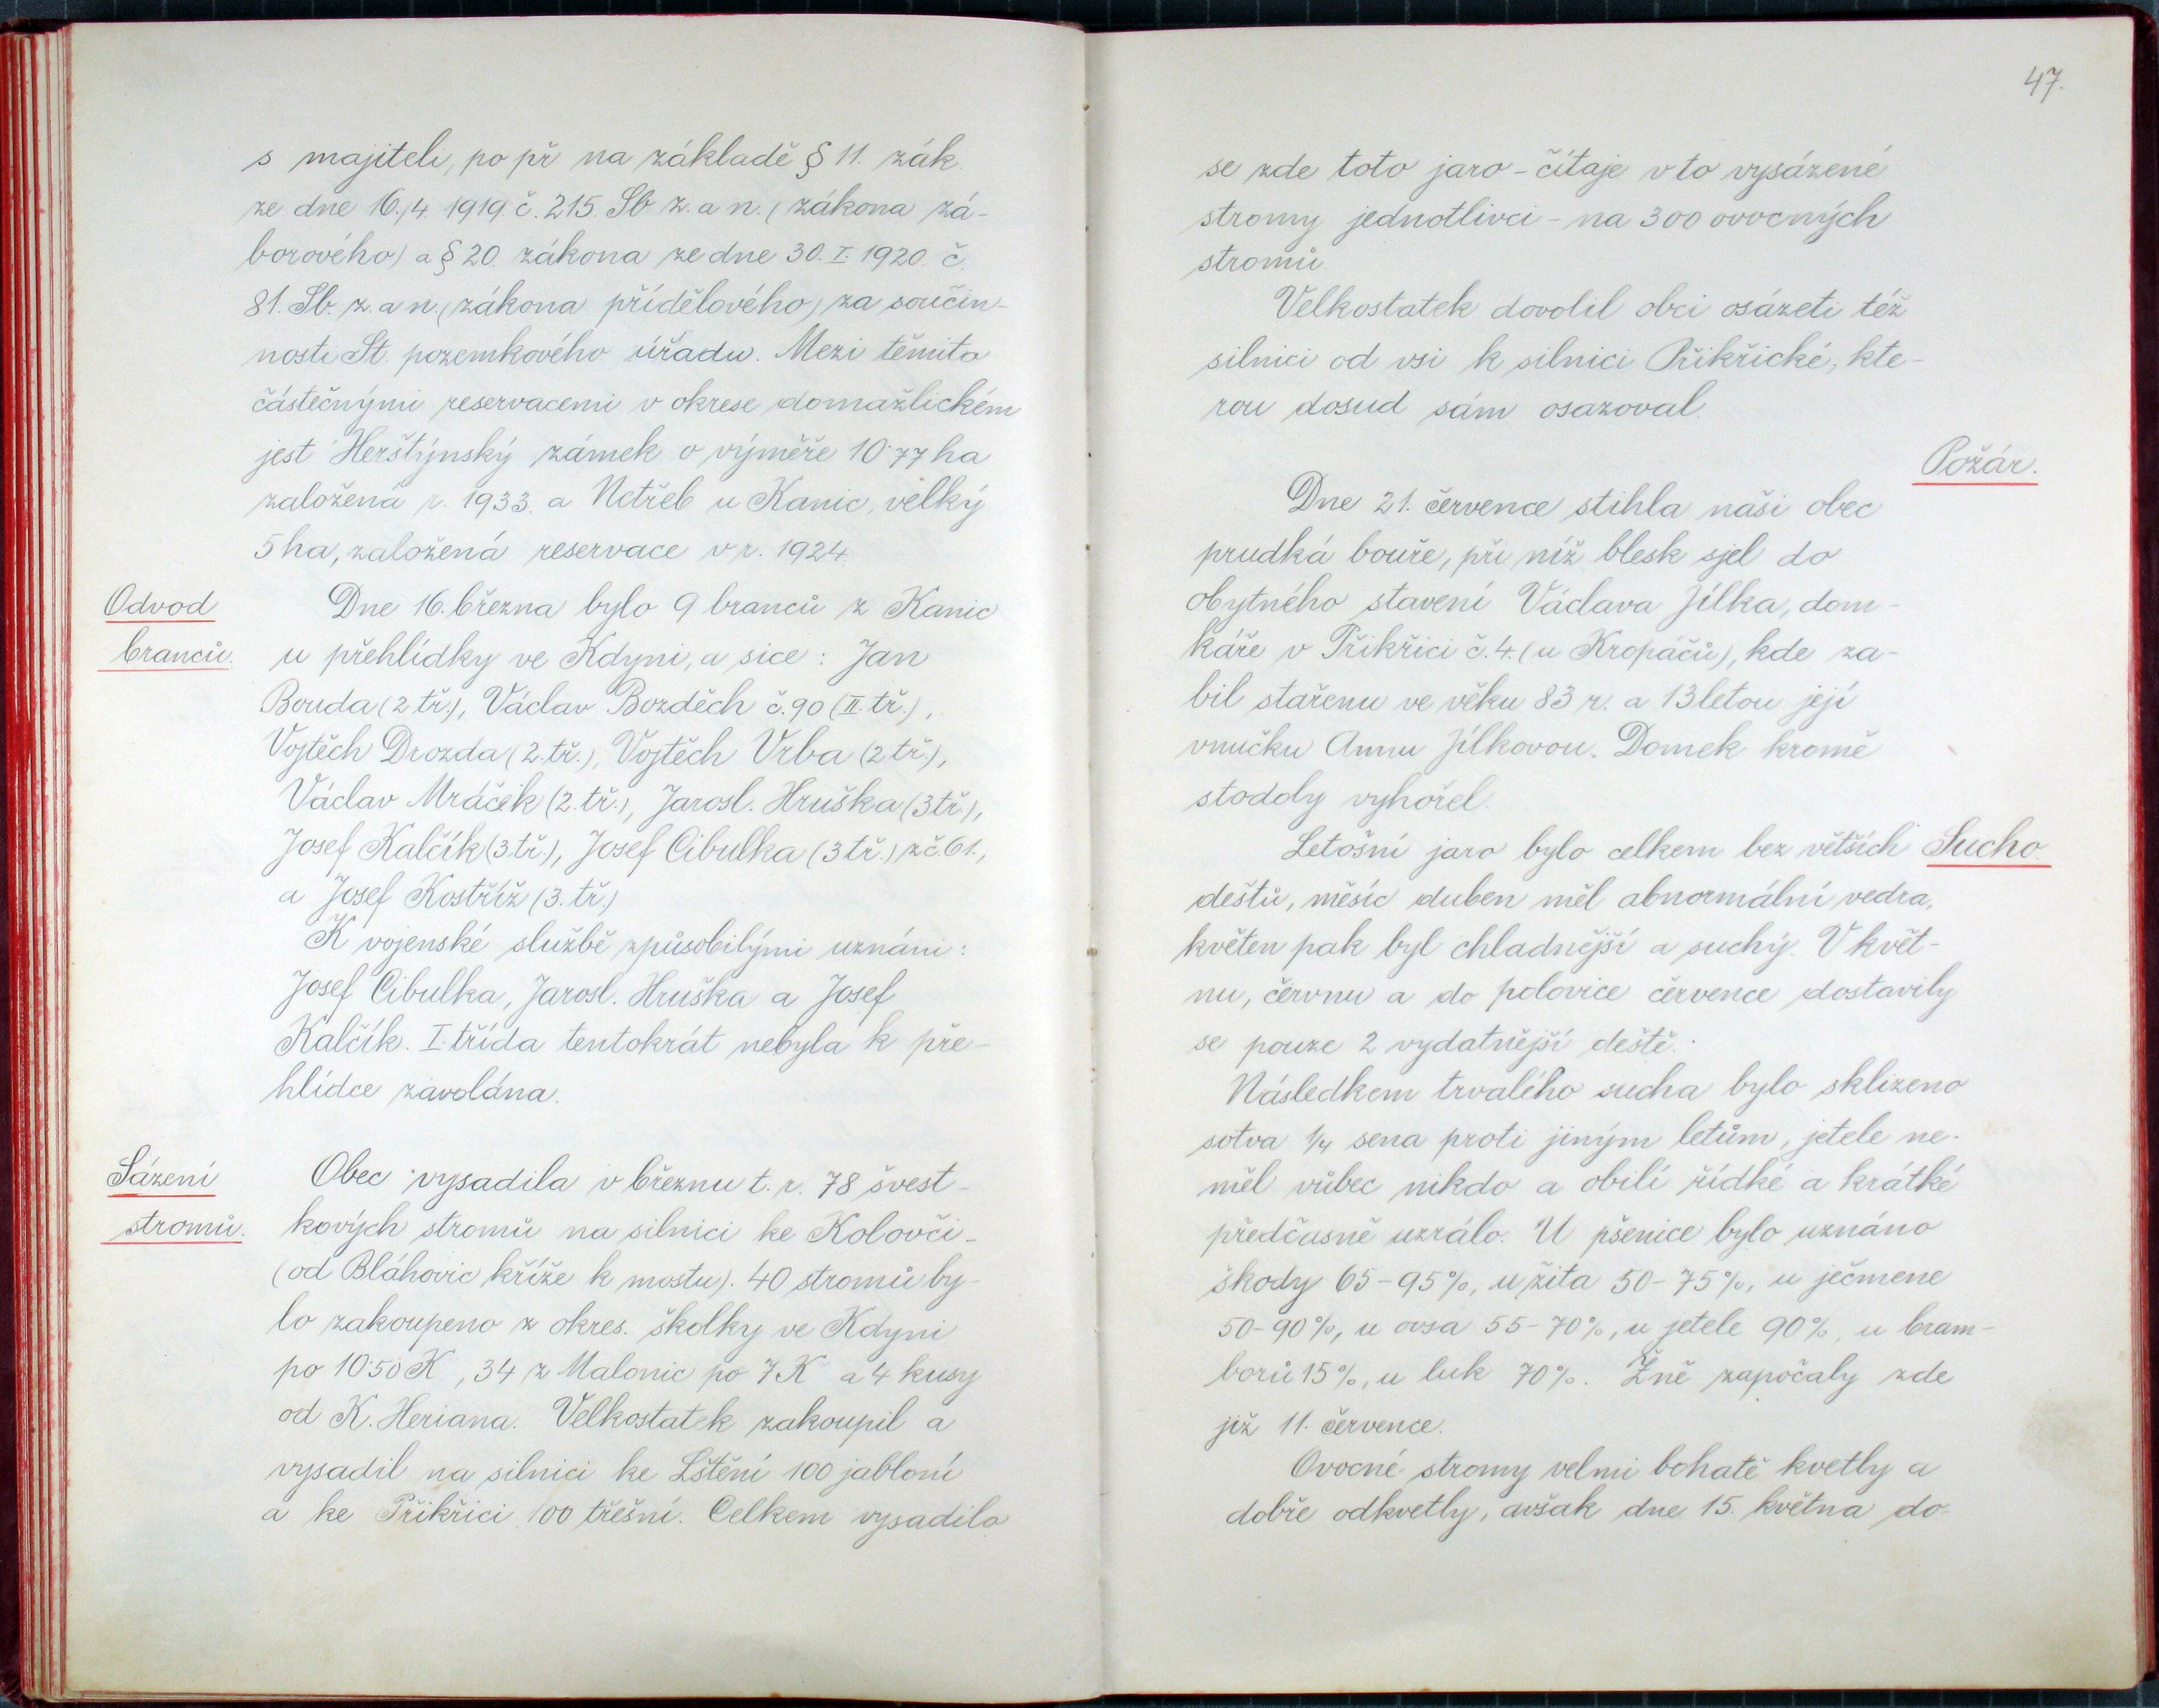 s majiteli, po př. na základě § 11. zák.
ze dne 16./4. 1919. č. 215. Sb. z. a n. (zákona zá-
borového) a § 20. zákona ze dne 30. I. 1920. č.
81. Sb. z. a n. (zákona přídělového) za součin-
nosti St. pozemkového úřadu. Mezi těmito
částečnými reservacemi v okrese domažlickém
jest Herštýnský zámek o výměře 10·77 ha
založená r. 1933. a Netřeb u Kanic, velký
5 ha, založená reservace v r. 1924.
Odvod
branců.
Dne 16. března bylo 9 branců z Kanic
u přehlídky ve Kdyni, a sice: Jan
Bouda (2 tř.), Václav Bozděch č. 90 (II. tř.),
Vojtěch Drozda (2. tř.), Vojtěch Vrba (2 tř.),
Václav Mráček (2. tř.), Jarosl. Hruška (3 tř.),
Josef Kalčík (3. tř.), Josef Cibulka (3 tř.) z č. 61.,
a Josef Kostříž (3. tř.)
K vojenské službě způsobilými uznáni:
Josef Cibulka, Jarosl. Hruška a Josef
Kalčík. I. třída tentokrát nebyla k pře-
hlídce zavolána.
Sázení
stromů.
Obec vysadila v březnu t. r. 78 švest-
kových stromů na silnici ke Kolovči-
(od Bláhovic kříže k mostu). 40 stromů by-
lo zakoupeno z okres. školky ve Kdyni
po 10·50 K, 34 z Malonic po 7 K a 4 kusy
od K. Heriana. Velkostatek zakoupil a
vysadil na silnici ke Lštění 100 jabloní
a ke Přikřici 100 třešní. Celkem vysadilo
47.
se zde toto jaro - čítaje v to vysázené
stromy jednotlivci - na 300 ovocných
stromů.
Velkostatek dovolil obci osázeti též
silnici od vsi k silnici Přikřické, kte-
rou dosud sám osazoval.
Požár.
Dne 21. července stihla naši obec
prudká bouře, při níž blesk sjel do
obytného stavení Václava Jílka, dom-
káře v Přikřici č. 4. (u Kropáčů), kde za-
bil stařenu ve věku 83 r. a 13letou její
vnučku Annu Jílkovou. Domek kromě
stodoly vyhořel.
Sucho.
Letošní jaro bylo celkem bez větších
deštů, měsíc duben měl abnormální vedra,
květen pak byl chladnější a suchý. V květ-
nu, červnu a do polovice července dostavily
se pouze 2 vydatnější deště.
Následkem trvalého sucha bylo sklizeno
sotva 1/4 sena proti jiným letům, jetele ne-
měl vůbec nikdo a obilí řídké a krátké
předčasně uzrálo. U pšenice bylo uznáno
škody 65-95%, u žita 50-75%, u ječmene
50-90%, u ovsa 55-70%, u jetele 90%, u bram-
borů 15%, u luk 70%. Žně započaly zde
již 11. července.
Ovocné stromy velmi bohatě kvetly a
dobře odkvetly, avšak dne 15. května do-